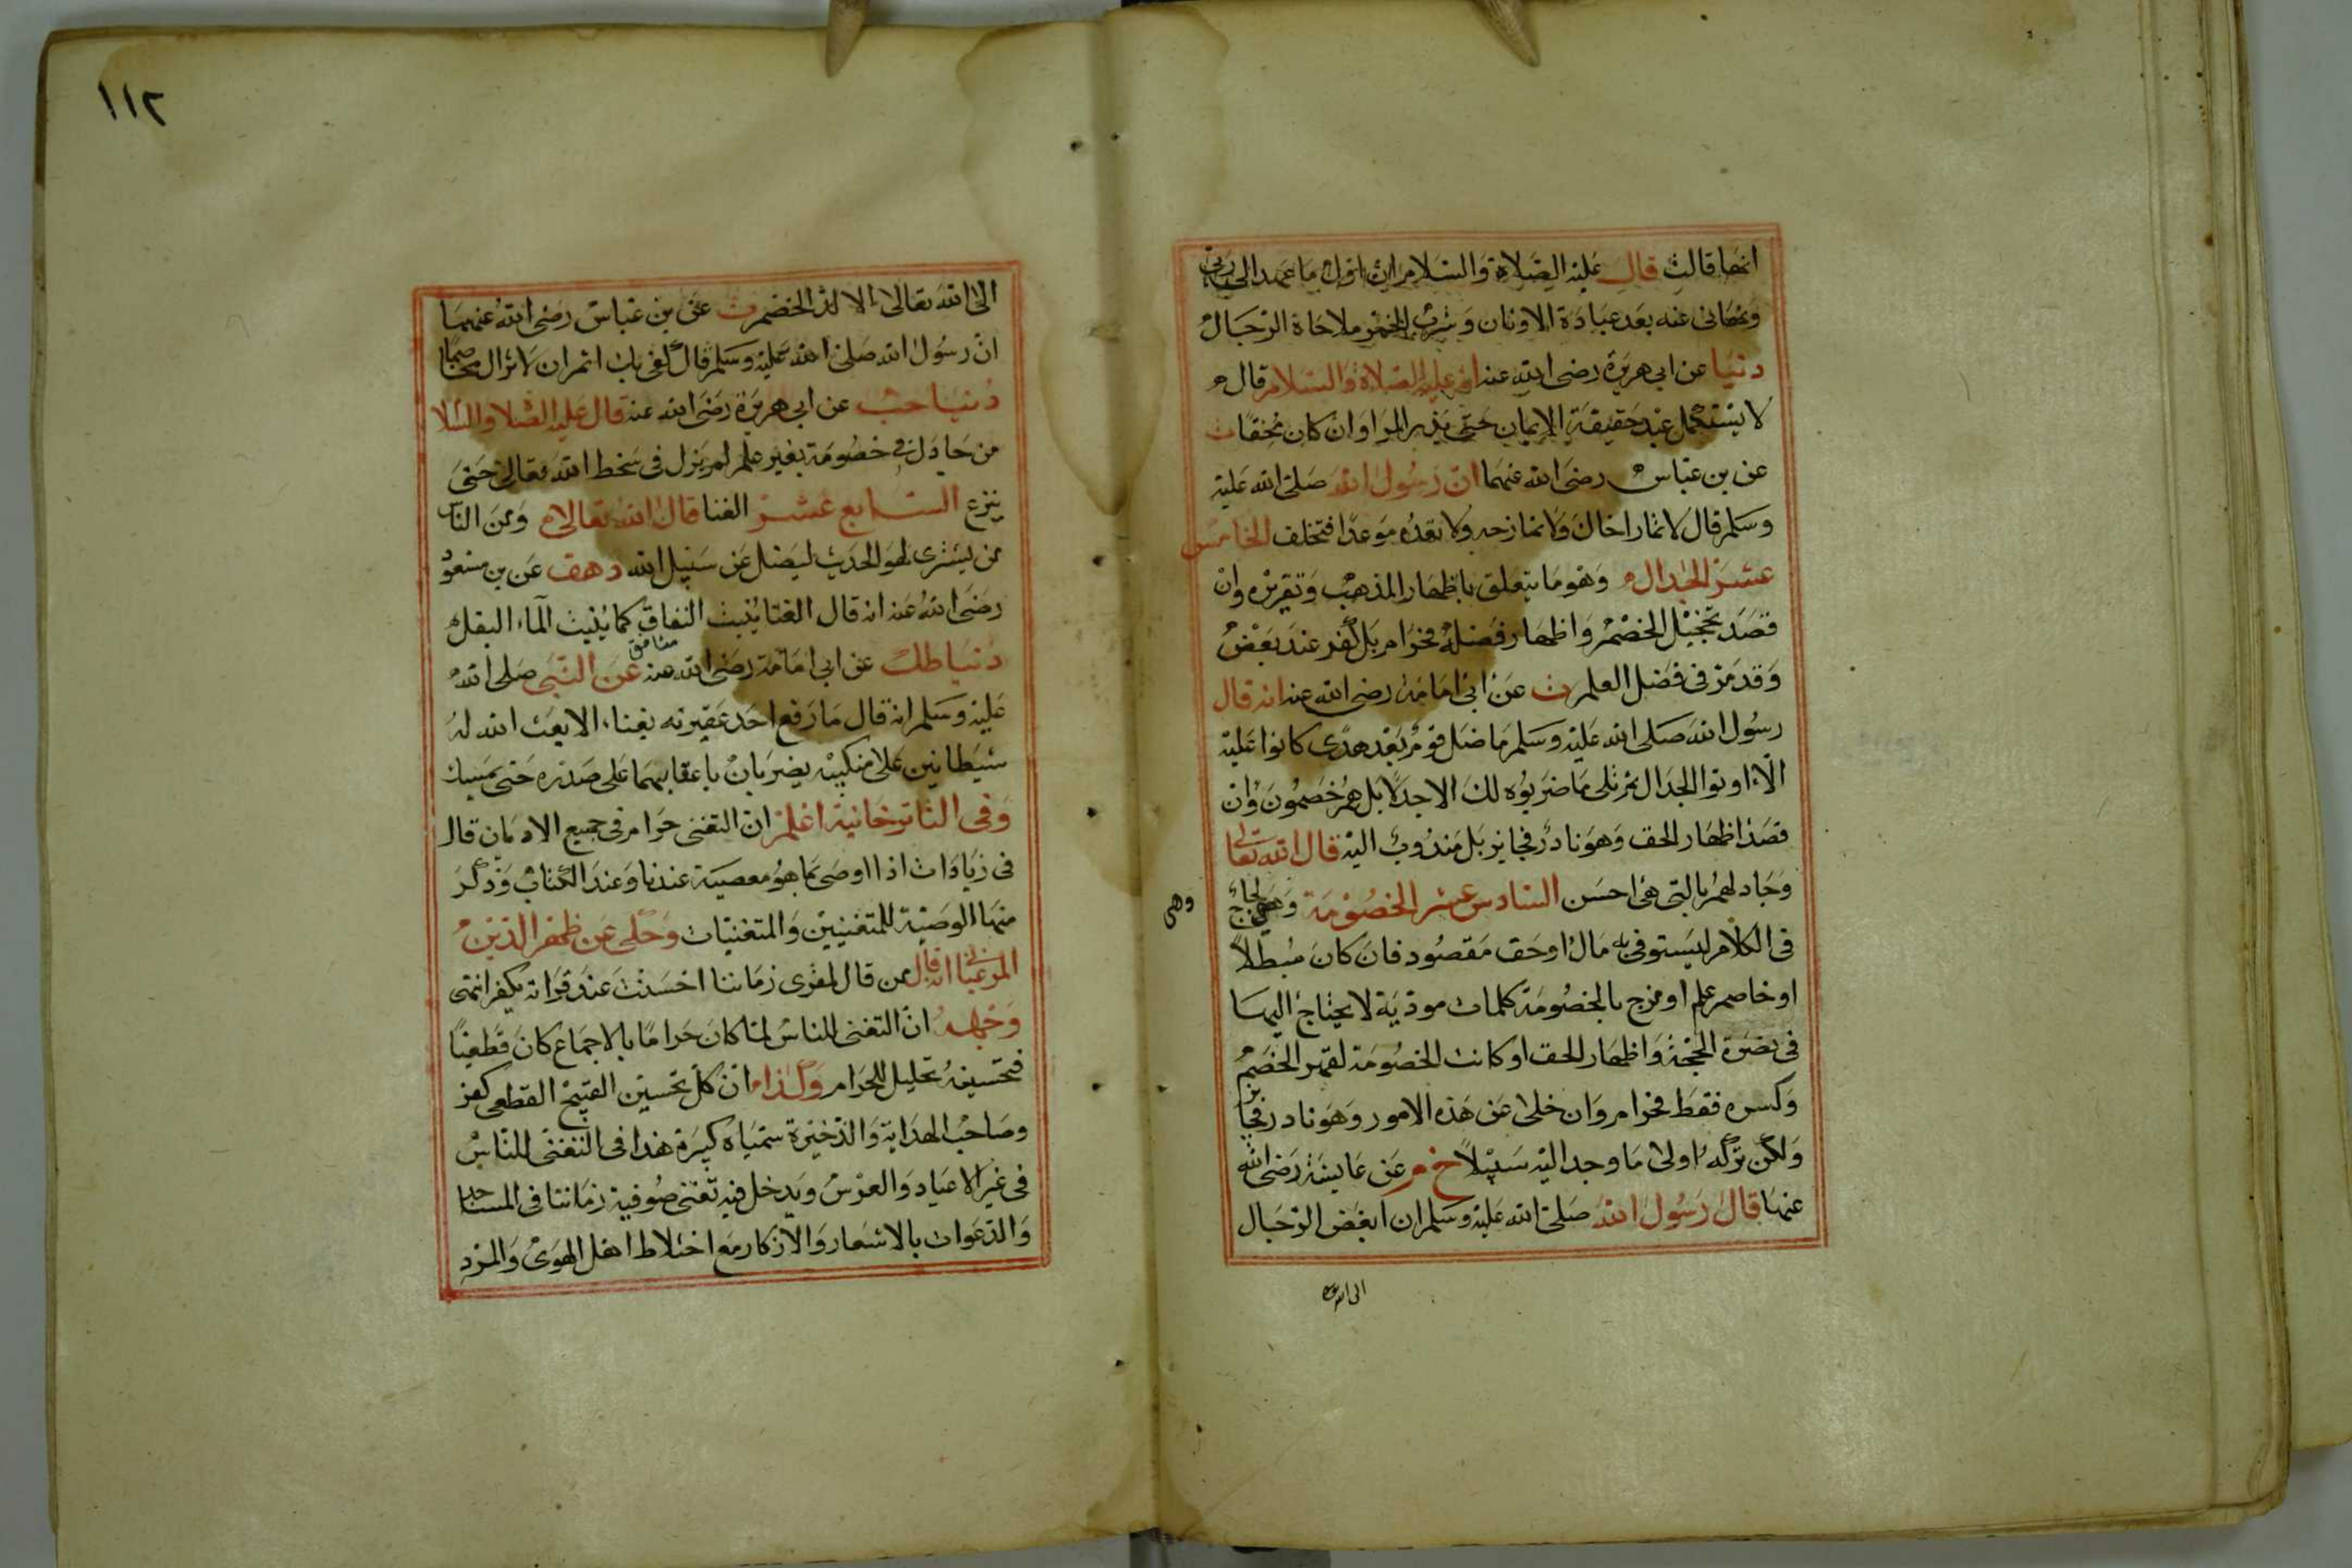 انها قالت قال عليه الصلاة والسلام ان اول ما عهد الى ربى
ونهانى عنه بعد عبادة الاوثان وشرب الخمر ملاحاة الرجال
دنيا عن ابى هريرة رضى الله عنه انه عليه الصلاة والسلام قال
لا يستكمل عبد حقيقة الايمان حتى يذر المرا وان كان محقا ت
عن بن عباس رضى الله عنهما ان رسول الله صلى الله عليه
وسلم قال لا تمار اخاك ولا تمازحه ولا تعده موعدا فتخلف الخامس
عشر الجدال وهو ما يتعلق باظهار المذهب وتقريره وان
قصد تخجيل الخصم واظهار فضله فحرام بل كفر عند بعض
وقد مر فى فضل العلم ت عن ابى امامة رضى الله عنه انه قال
رسول الله صلى الله عليه وسلم ما ضل قوم بعد هدى كانوا عليه
الا اوتوا الجدال ثم تلى ما ضربوه لك الا جدلا بل هم خصمون وان
قصد اظهار الحق وهو نادر فجايز بل مندوب اليه قال الله تعالى
وجادلهم بالتى هى احسن السادس عشر الخصومة وهى لجاج
وهى
فى الكلام ليستوفى به مال او حق مقصود فان كان مبطلا
او خاصم علم او مزج بالخصومة كلمات موذية لا يحتاج اليها
فى نصرة الحجة واظهار الحق او كانت الخصومة لقهر الخصم
وكسره فقط فحرام وان خلى عن هذه الامور وهو نادر فجايز
ولكن تركه اولى ما وجد اليه سبيلا خ م عن عايشة رضى الله
عنها قال رسول الله صلى الله عليه وسلم ان ابغض الرجال
الى الله
١١٢
الى الله تعالى الالد الخصم ت عن بن عباس رضى الله عنهما
ان رسول الله صلى الله عليه وسلم قال كفى بك اثم ان لا تزال مخاصما
دنيا حب عن ابى هريرة رضى الله عنه قال عليه الصلا والسلا
من جادل فى خصومة بغير علم لم يزل فى سخط الله تعالى حتى
ينزع السابع عشر الغنا قال الله تعالى ومن الناس
من يشترى لهو الحديث ليضل عن سبيل الله د هق عن بن مسعود
رضى الله عنه انه قال الغنا ينبت النفاق كما ينبت الماء البقل
دنيا طك عن ابى امامة رضى الله عنه عن النبى صلى الله
عليه وسلم انه قال ما رفع احد عقيرته بغناء الا بعث الله له
شيطانين على منكبيه يضربان باعقابهما على صدره حتى يمسك
وفى التاتوخانية اعلم ان التغنى حرام فى جميع الاديان قال
فى زيادات اذا اوصى بما هو معصية عندنا وعند الكتاب وذكر
منها الوصية للمتغنيين والمتغنيات وحكى عن ظهر الدين
المرغينانى انه قال من قال لمقرى زماننا احسنت عند قراته يكفر انتهى
وجهه ان التغنى للناس لما كان حراما بالاجماع كان قطعيا
فتحسينه تحليل للحرام ولذا ان كل تحسين القبيح القطعى كفر
وصاحب الهداية والذخيرة سمياه كبيرة هذا فى التغنى للناس
فى غير الاعياد والعرس ويدخل فيه تغنى صوفية زماننا فى المساجد
والدعوات بالاشعار والاذكار مع اختلاط اهل الهوى والمرد